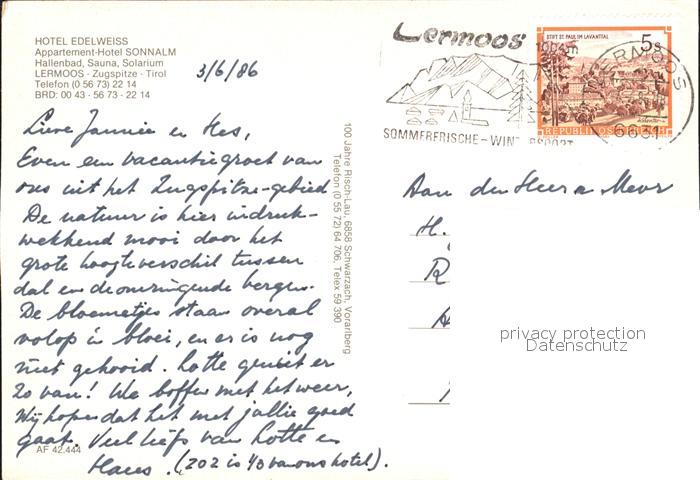 HOTEL EDELWEISS
Appartement-Hotel SONNALM
Hallenbad, Sauna, Solarium
LERMOOS - Zugspitze - Tirol
Telefon (0 56 73) 22 14
BRD: 00 43 - 56 73 - 22 14
3/6/86
Lieve Jannie en Hes,
Even een vacantiegroet van
ons uit het Zugspitze-gebied
De natuur is hier indruk-
wekkend mooi door het
grote hoogteverschil tussen
dal en de omringende bergen.
De bloemetjes staan overal
volop in bloei, en er is nog
niet gehooid. Lotte geniet er
zo van! We boffen met het weer,
Wij hopen dat het met jullie goed
gaat. Veel liefs van Lotte en
Haus. (202 is 1/3 van ons hotel).
AF 42.444
100 Jahre Risch-Lau, 6858 Schwarzach, Vorarlberg
Telefon (0 55 72) 64 706, Telex 59 390
Lermoos
1004
SOMMERFRISCHE-WIN RSPORT
STIFT ST. PAUL IM LAVANTTAL
5 S
REPUBLIK ÖSTERREICH
LERMOOS
6631
Aan de Heer en Mevr
H.
R
privacy protection
Datenschutz